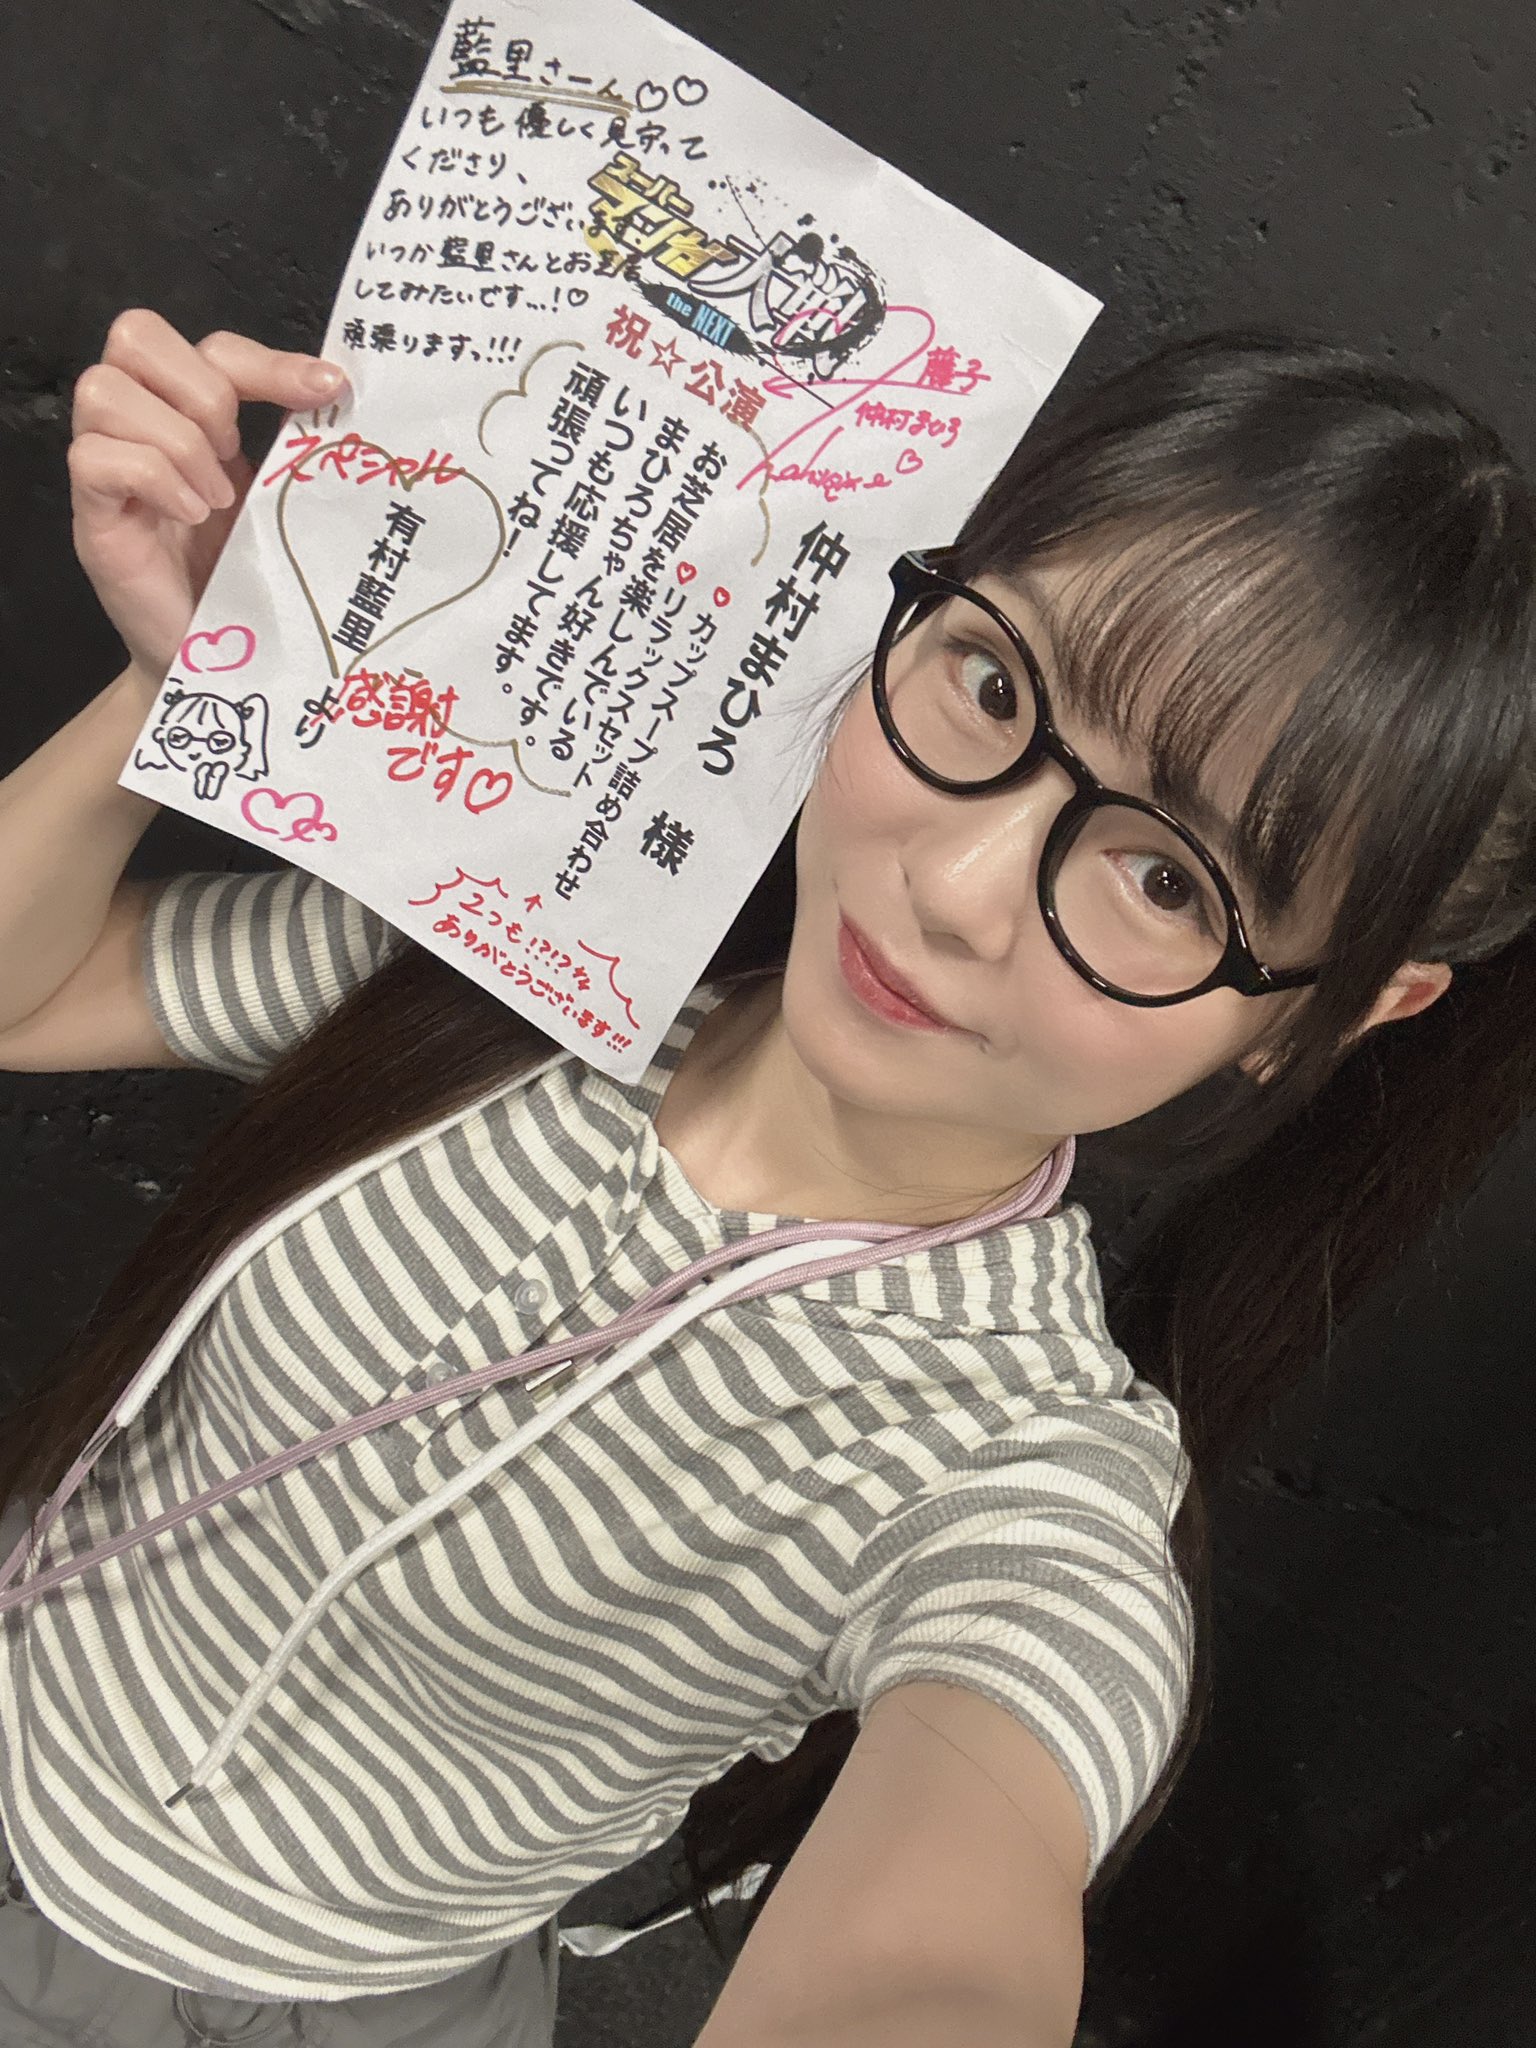 藍里さーん♡♡
いつも優しく見守って
くださり、
ありがとうございます。
いつか藍里さんとお芝居
してみたいです…!♡
頑張りますっ!!!
スーパーマンガ大戦
the NEXT
祝☆公演
藤子
仲村まひろ
仲村まひろ 様
♥カップスープ詰め合わせ
♥リラックスセット
お芝居を楽しんでいる
まひろちゃん好きです。
いつも応援してます。
頑張ってね!
スペシャル
有村藍里 より
感謝
です♡
↑
2つも!?!?
ありがとうございます!!!